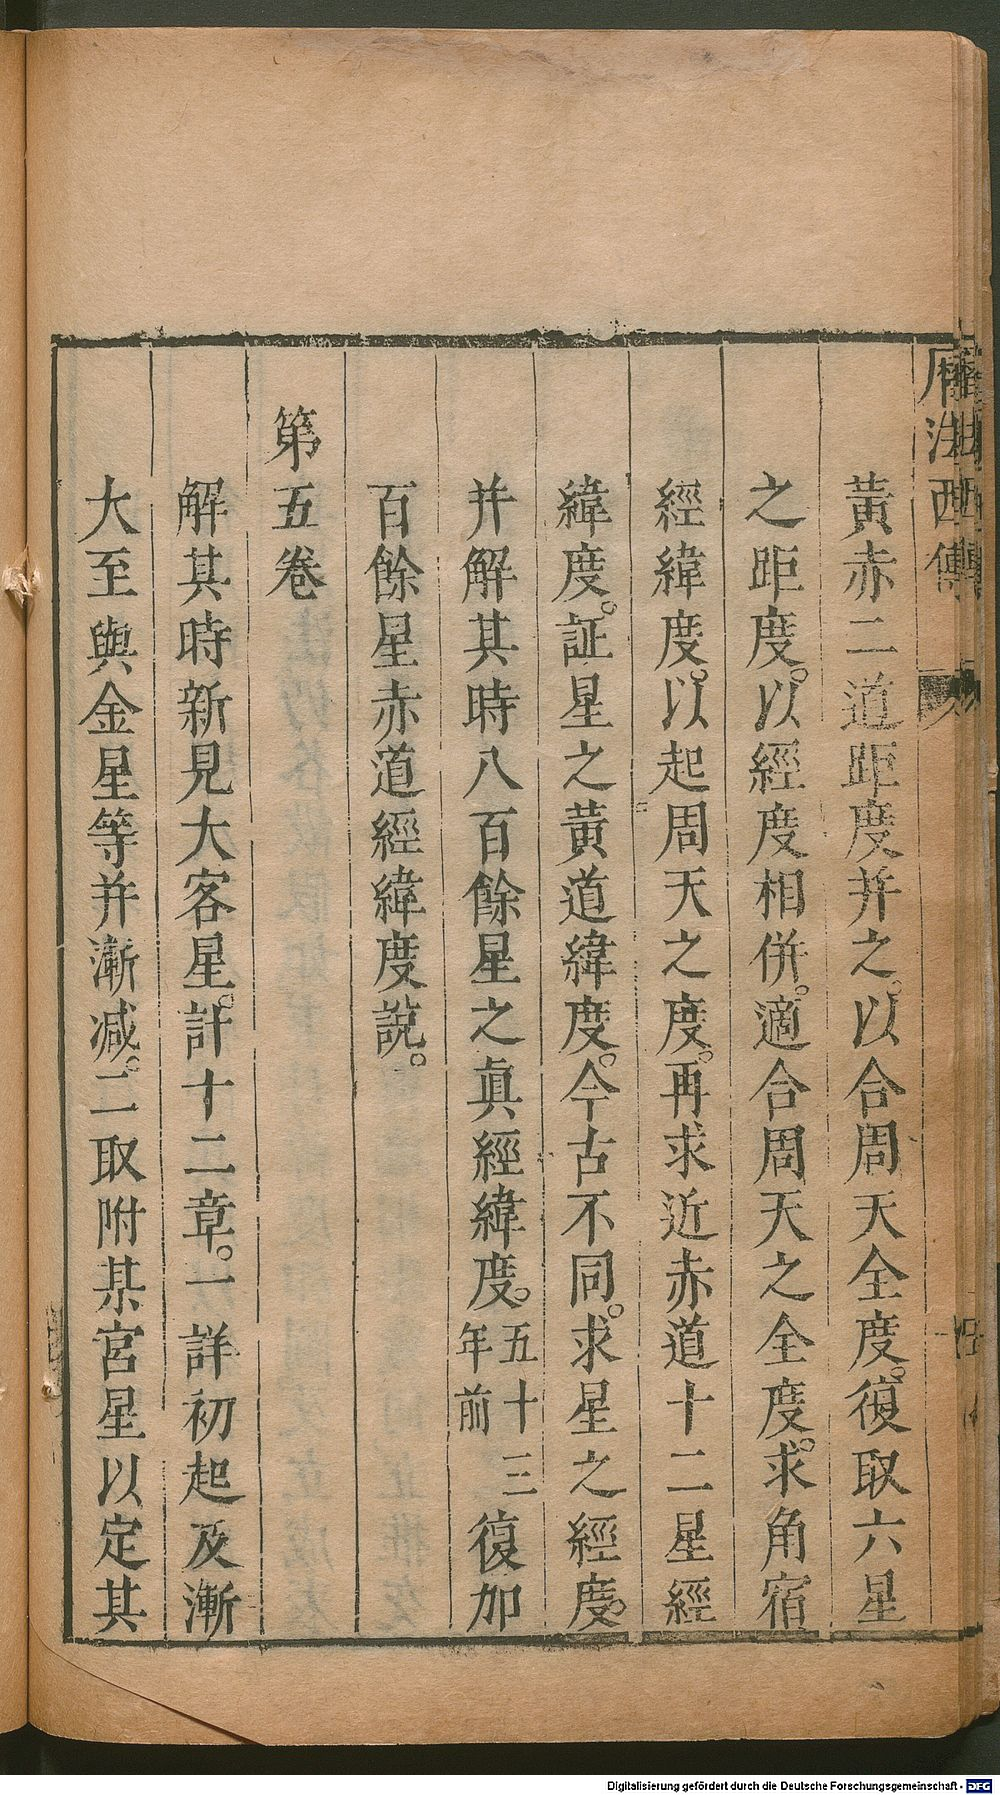 曆法西傳
黃赤二道距度并之。以合周天全度。復取六星
之距度。以經度相併。適合周天之全度。求角宿
經緯度。以起周天之度。再求近赤道十二星經
緯度。証星之黃道緯度。今古不同。求星之經度。
并解其時八百餘星之眞經緯度。五十三年前復加
百餘星赤道經緯度說。
第五卷
解其時新見大客星。計十二章。一詳初起及漸
大至與金星等并漸減。二取附某宮星以定其
Digitalisierung gefördert durch die Deutsche Forschungsgemeinschaft - DFG